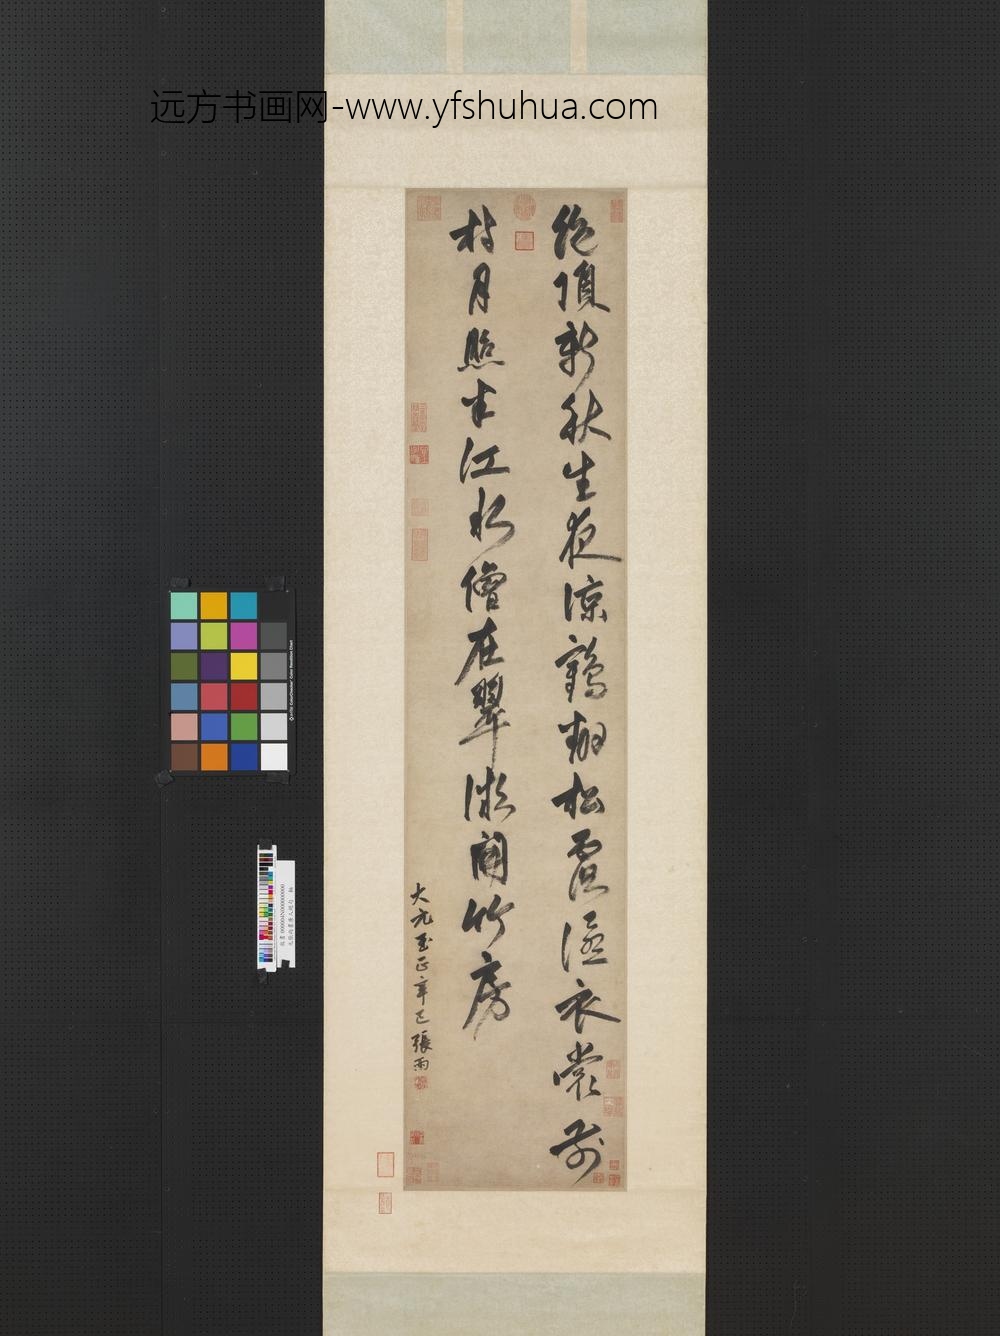 远方书画网-www.yfshuhua.com
絕頂新秋生夜涼鶴翻松露濕衣裳前
村月照半江水僧在翠微開竹房
大元至正辛巳張雨